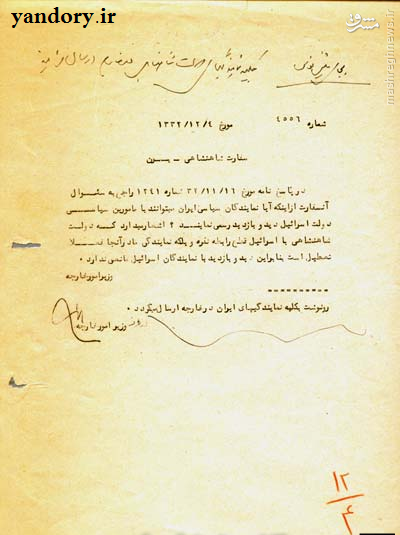 yandory.ir
مشرق
mashreghnews.ir
شماره ۴۵۵۶ مورخ ۱۳۳۲/۱۲/۴
سفارت شاهنشاهی - بـــن
در پاسخ نامه مورخ ۳۲/۱۱/۱۶ شماره ۱۲۴۱ راجع به سئوال
آنسفارت از اینکه آیا نمایندگان سیاسی ایران میتوانند با مامورین سیاسی
دولت اسرائیل دید و بازدید رسمی نمایند ؟ اشعار میدارد که دولت
شاهنشاهی با اسرائیل قطع رابطه نکرده بلکه نمایندگی ما در آنجا فعلا
تعطیل است بنابراین دید و بازدید با نمایندگان اسرائیل مانعی ندارد ۰
وزیر امور خارجه
رونوشت بکلیه نمایندگیهای ایران در خارجه ارسال میگردد ۰
وزیر امور خارجه
۱۲
۴